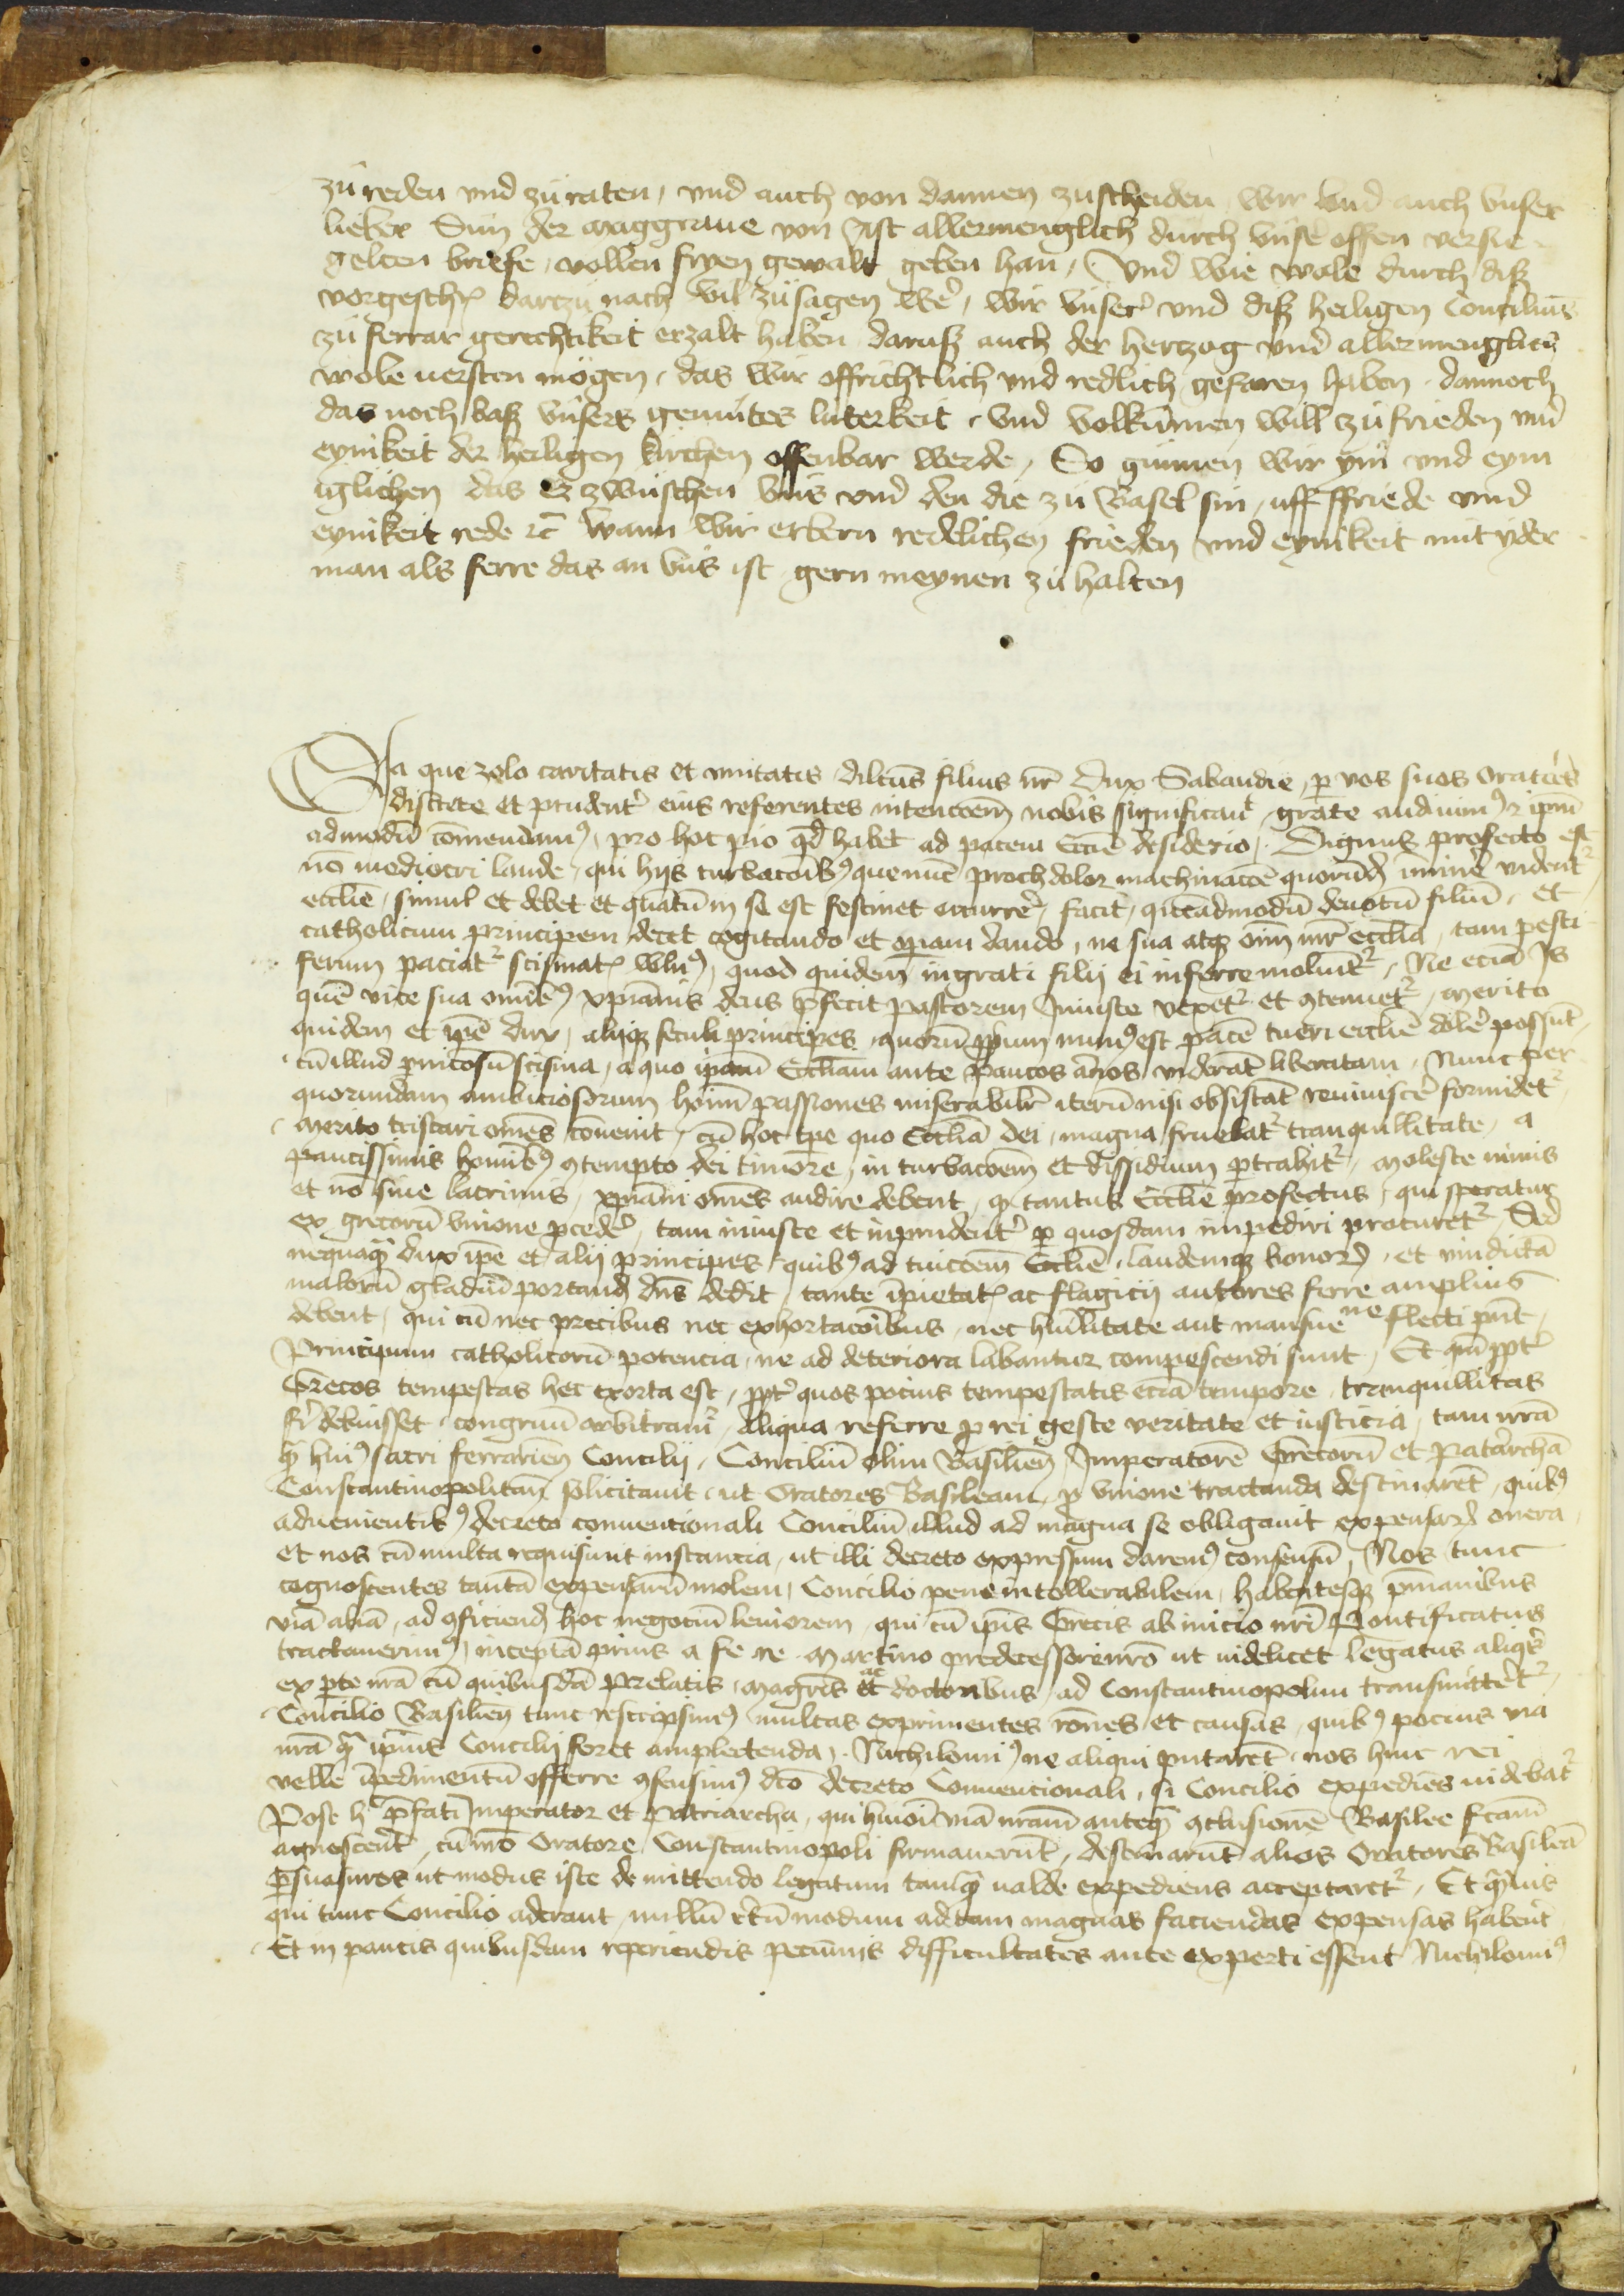 zu reden vnd zu raten, vnd auch von dannen zuscheiden, wir vnd auch vnser
lieber Sun der marggraue von Ast allermenglich durch vnse offen versie-
gelten briefe, vollen fryen gewalt geben han, Vnd wie wole durch disz
vorgesch darzu nach vil zusagen we, wir vnser vnd disz heiligen Conciliums
zu ferrar gerechtikeit erzalt haben darusz auch der hertzog vnd allermenglich
wole uersten mögen, das wir offrichtlich vnd redlich gefaren haben. dannoch
das noch basz vnsers gemütes luterkeit, vnd volkumen will zu frieden vnd
eynikeit der heiligen kirchen offenbar werde, So gunnen wir ym vnd eym
iglichen das Er zwüschen vns vnd den die zu Basel sin, uff ffriede vnd
eynikeit rede ꝛc̄ Wann wir erbern redelichen frieden vnd eynikeit mit yder
man als ferre das an vns ist gern meynen zu halten
Ea que zelo caritatis et vnitatis dilcūs filius nr̄ dux Sabaudie, ꝑ vos suos Oratores
discrete et prudentꝰ eius referentes intenccoem nobis significauit, grate audiuimꝰ ꝛ ipm̄
admodū cōmendamꝰ, pro hoc pio qd̄ habet ad pacem Eccie desiderio. Dignus profecto est
nō mediocri laude, qui hijs turbacoibꝰ que nūc prochdolor machinaccōe quorūdꝫ īminē vident᷑
ecclie, simul et debet et qn̄atū in se est festinet occurrē, facit, quēadmodū deuotū filiū, et
catholicum principem decet cogitando et operam dando, ne sua atqꝫ oim̄ mr̄ ecclia, tam pesti
ferum paciat᷑ scismatꝭ wlnꝰ, quod quidem ingrati filij ei inferre moliunt᷑, Ne eciā Is
quē vice sua omibꝰ xp̄ianis deus p̄fecit pastorem Iniuste vexet᷑ et ꝯtempnet᷑, merito
quidem et ipē dux, alijqꝫ seculi principes, quorū ꝓprium munꝰ est pacē tueri ecclie dolē possūt,
cū illud pnicosū scisma, a quo ipam̄ Eccliam ante paucos annos viderāt liberatam. Nunc per
quorundam ambiciosorum hoim̄ passiones miserabilr̄ iterū nisi obsistāt reuiuiscē formidet᷑
merito tristari omēs conuenit, cū hoc tp̄e quo Ecclia dei, magna fruebat᷑ tranquillitate, a
paucissimis homibꝰ ꝯtempto dei timore, in turbacoem et dissidium ptrahit᷑, moleste nimis
et nō sine lacrimis, xp̄iani omēs audire debent, qꝫ tantus Ecclie profectus, qui speratur
ex grecorū vnione ꝓcedē, tam iniuste et inprudentꝰ ꝑ quosdam impediri procuret᷑, Sed
nequaq̄ dux ipē et alij principes, quibꝰ ad tuiccōem Ecclie, laudemqꝫ bonorꝫ, et vindictā
malorū gladiū portandꝫ dn̄s dedit, tante īpietatꝭ ac flagicij autores ferre amplius
debent, qui cū nec precibus nec exhortacōibus, nec hūilitate aut mansue ne flecti pn̄t,
Principum catholicorū potencia, ne ad deteriora labantur compescendi sunt, Et qn̄ ꝓptꝰ
Grecos tempestas hec exorta est, ꝓptꝰ quos pocius tempestatis eciā tempore, tranquillitas
fri debuisset, congruū arbitramꝰ, Aliqua referre ꝓ rei geste veritate et iusticia, tam nr̄a
qꝫ huiꝰ sacri ferrarien̄ Concilij, Conciliū olim Basilien̄, Imperatorē Grecorū et Patarchā
Constantinopolitan̄ solicitauit, ut Oratores Basileam, ꝓ vnione tractanda destinarēt, quibꝰ
aduenientibꝰ decreto conuentionali Conciliū illud ad magna se obligauit expensarꝫ onera,
et nos cū multa requisiuit instancia, ut illi decreto expressum daremꝰ consensū, Nos tunc
cognoscentes tantā expensarū molem, Concilio pene intollerabilem, habentesqꝫ p̄manibus
viā aliā, ad ꝯficiendꝫ hoc negociū leuiorem, qui cū ipīs Grecis ab inicio nr̄i Pontificatus
tractauerimꝰ, inceptā prius a fe. re. Martino predecessore nr̄o ut uidelicet legatus aliqs̄
ex pte nr̄a cū quibusdā Prelatis, magr̄is ac doctoribus, ad Constantinopolim transmittet᷑,
Concilio Basilien̄ tunc rescripsimꝰ multas exprimentes rōnes et causas, quibꝰ pocius via
nr̄a qꝫ ipīus Concilij foret amplectenda. Nichilomiꝰ ne aliqui putarēt, nos huic rei
velle īpedimentū offerre ꝯsensimꝰ dc̄o decreto Conuencionali, si Concilio expediens uidebat᷑
Post hͨ p̄fati Imperator et Patriarcha, qui huioī viā nr̄am anteqꝫ ꝯclusionē Basilee fc̄am
agnoscent, cū nr̄o Oratore, Constantinopoli firmauerūt, destinarūt alios Oratores Basileā
ꝑsuasuros ut modus iste de mittendo legatum tamqꝫ ualde expediens acceptaret᷑, Et qꝫuis
qui tunc Concilio aderant, nullū certū modum ad tam magnas faciendas expensas haberēt
Et in paucis quibusdam reperiendis pecunijs difficultates ante experti essent Nichilomiꝰ